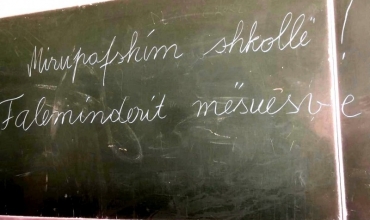 Mirupafshim shkollë!
Faleminderit mësuesve